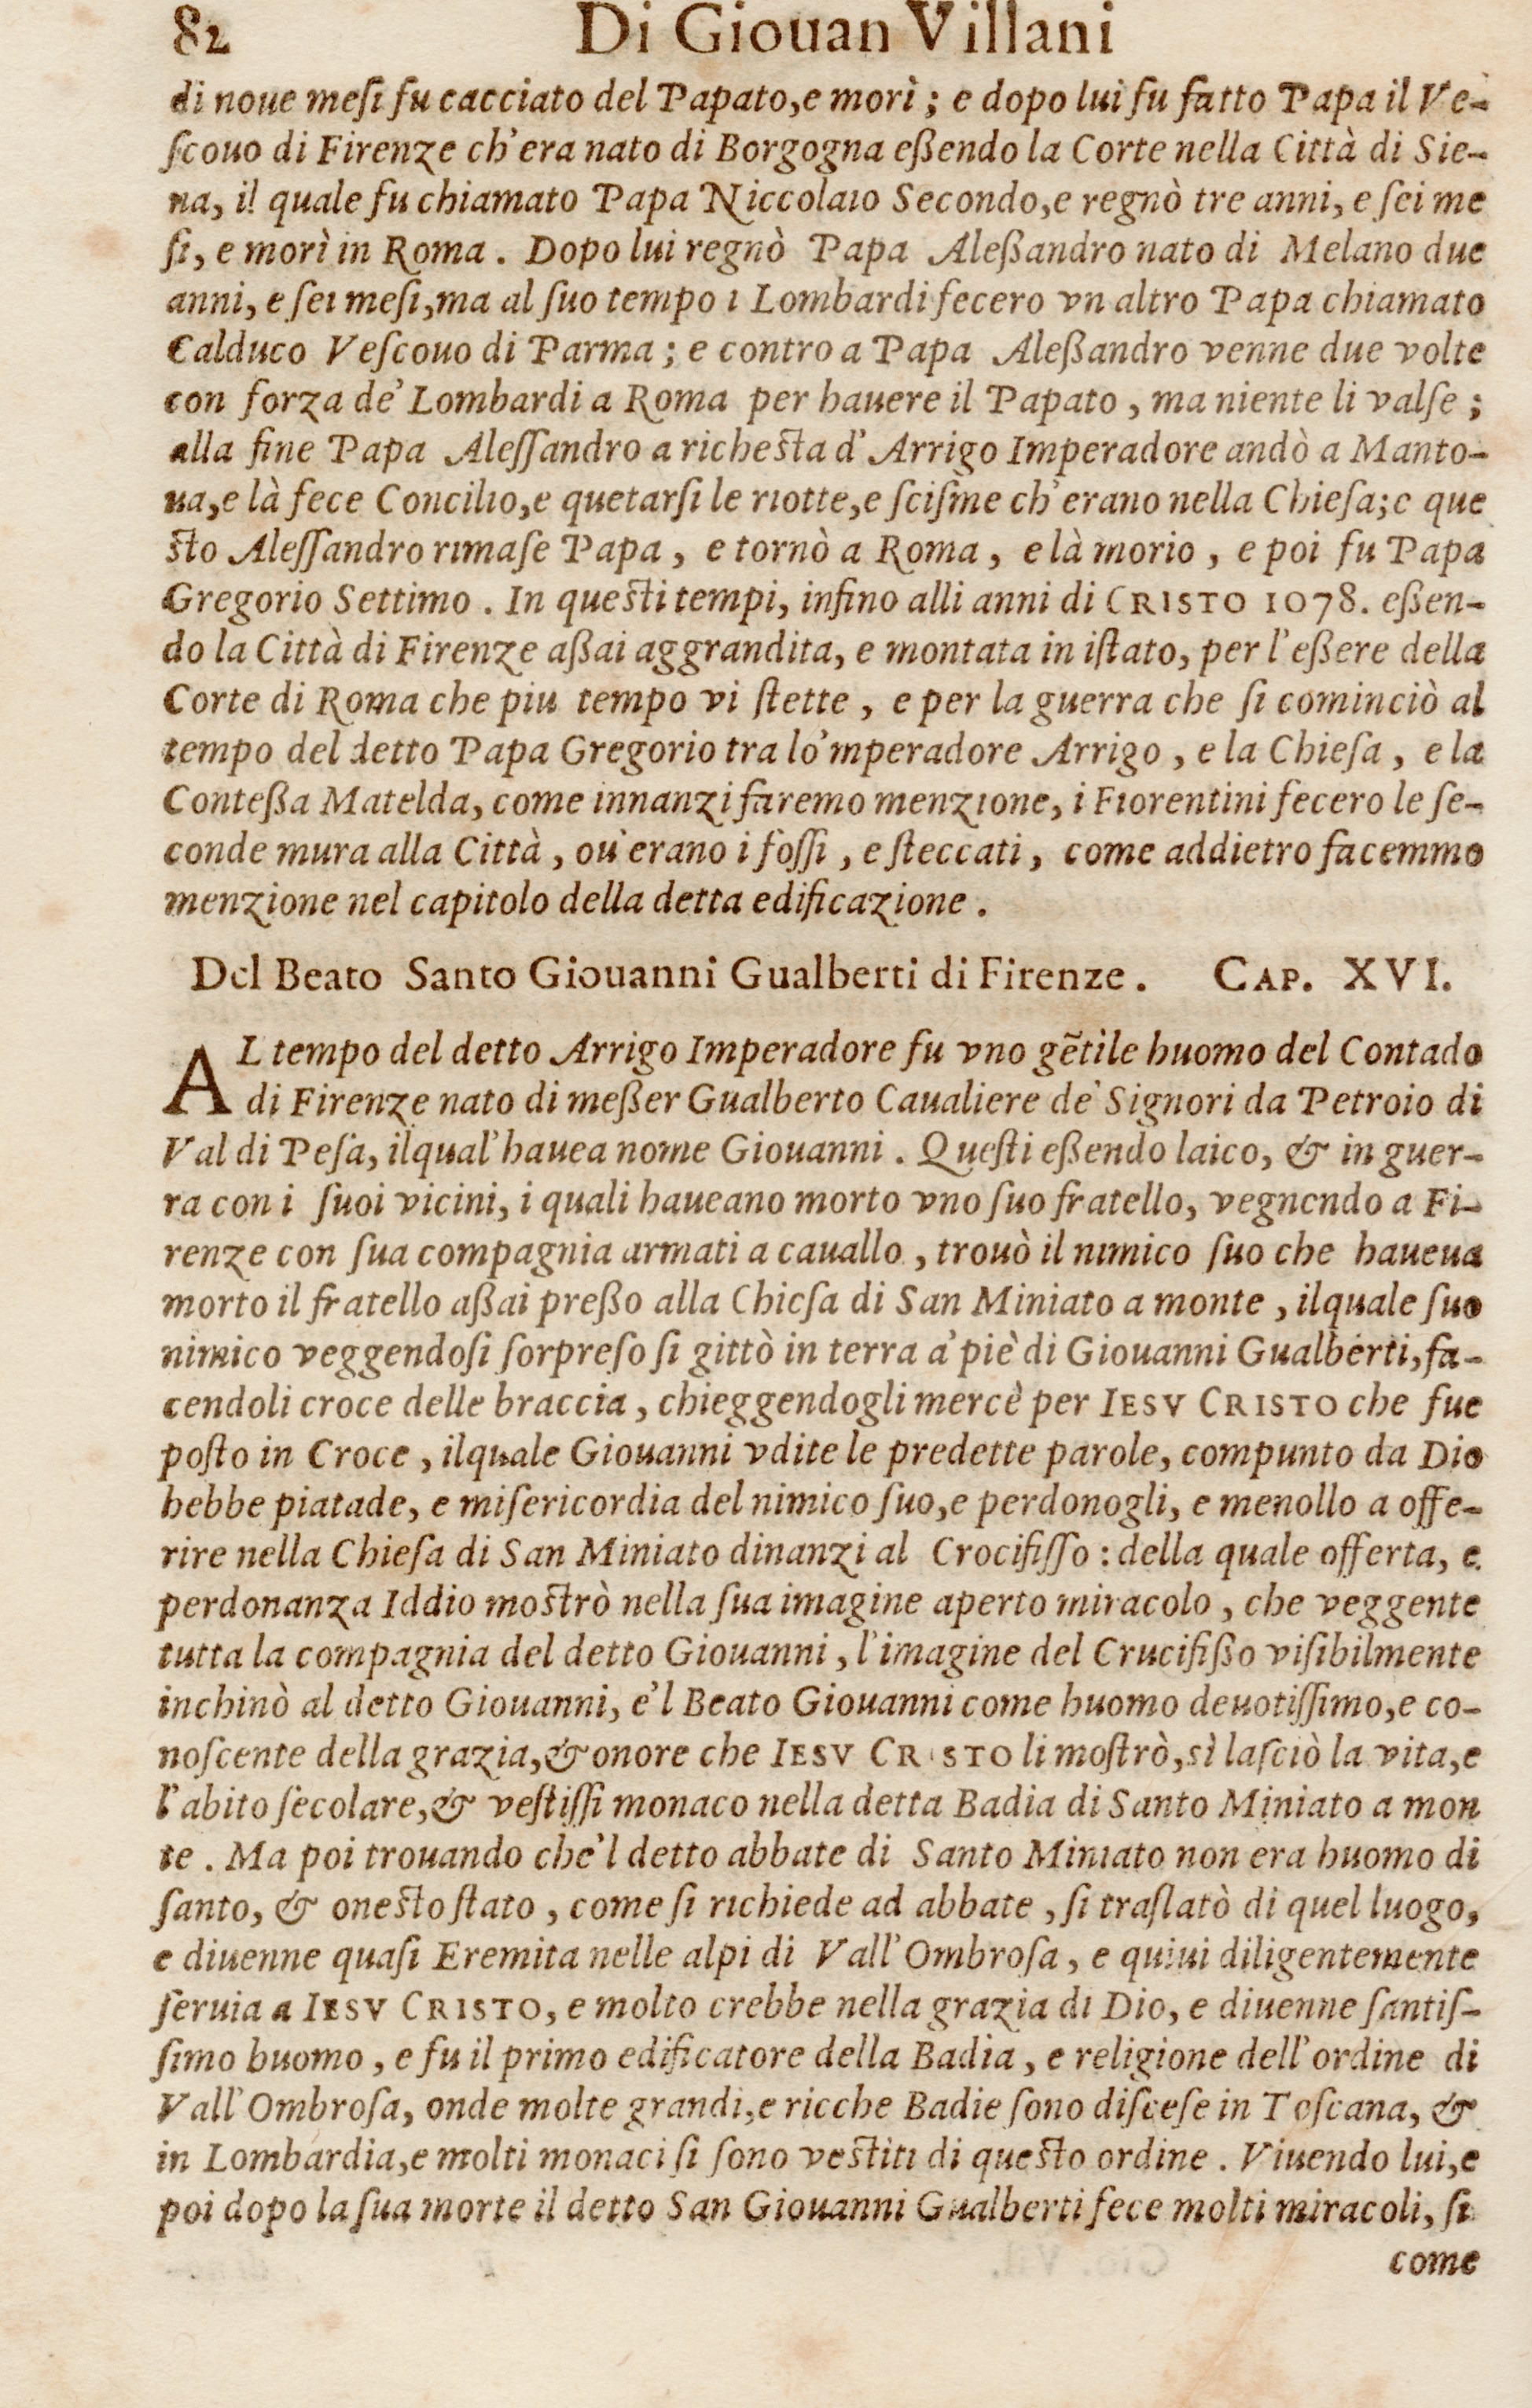 82 Di Giouan Villani
di noue mesi fu cacciato del Papato,e morì; e dopo lui fu fatto Papa il Ve-
ſcouo di Firenze ch'era nato di Borgogna eßendo la Corte nella Città di Sie-
na, il quale fu chiamato Papa Niccolaio Secondo,e regnò tre anni, e ſei me
ſi, e morì in Roma. Dopo lui regnò Papa Aleßandro nato di Melano due
anni, e ſei meſi,ma al ſuo tempo i Lombardi fecero vn altro Papa chiamato
Calduco Veſcouo di Parma; e contro a Papa Aleßandro venne due volte
con forza de' Lombardi a Roma per hauere il Papato, ma niente li valſe;
alla fine Papa Aleſſandro a richeſta d'Arrigo Imperadore andò a Manto-
ua,e là fece Concilio,e quetarſi le riotte,e ſciſme ch'erano nella Chieſa;e que
ſto Aleſſandro rimaſe Papa, e tornò a Roma, e là morio, e poi fu Papa
Gregorio Settimo. In queſti tempi, infino alli anni di CRISTO 1078. eßen-
do la Città di Firenze aßai aggrandita, e montata in iſtato, per l'eßere della
Corte di Roma che piu tempo vi ſtette, e per la guerra che ſi cominciò al
tempo del detto Papa Gregorio tra lo'mperadore Arrigo, e la Chieſa, e la
Conteßa Matelda, come innanzi faremo menzione, i Fiorentini fecero le ſe-
conde mura alla Città, ou'erano i foſſi, e ſteccati, come addietro facemmo
menzione nel capitolo della detta edificazione.
Del Beato Santo Giouanni Gualberti di Firenze. CAP. XVI.
AL tempo del detto Arrigo Imperadore fu vno gẽtile huomo del Contado
di Firenze nato di meßer Gualberto Caualiere de' Signori da Petroio di
Val di Peſa, ilqual'hauea nome Giouanni. Queſti eßendo laico, & in guer-
ra con i ſuoi vicini, i quali haueano morto vno ſuo fratello, vegnendo a Fi-
renze con ſua compagnia armati a cauallo, trouò il nimico ſuo che haueua
morto il fratello aßai preßo alla Chieſa di San Miniato a monte, ilquale ſuo
nimico veggendoſi ſorpreſo ſi gittò in terra a' piè di Giouanni Gualberti,fa-
cendoli croce delle braccia, chieggendogli mercè per IESV CRISTO che fue
poſto in Croce, ilquale Giouanni vdite le predette parole, compunto da Dio
hebbe piatade, e miſericordia del nimico ſuo,e perdonogli, e menollo a offe-
rire nella Chieſa di San Miniato dinanzi al Crocifiſſo: della quale offerta, e
perdonanza Iddio moſtrò nella ſua imagine aperto miracolo, che veggente
tutta la compagnia del detto Giouanni, l'imagine del Crucifißo viſibilmente
inchinò al detto Giouanni, e'l Beato Giouanni come huomo deuotiſſimo,e co-
noſcente della grazia,& onore che IESV CRISTO li moſtrò,sì laſciò la vita,e
l'abito ſecolare,& veſtiſſi monaco nella detta Badia di Santo Miniato a mon
te. Ma poi trouando che'l detto abbate di Santo Miniato non era huomo di
ſanto, & oneſto ſtato, come ſi richiede ad abbate, ſi traſlatò di quel luogo,
e diuenne quaſi Eremita nelle alpi di Vall'Ombroſa, e quiui diligentemente
ſeruia a IESV CRISTO, e molto crebbe nella grazia di Dio, e diuenne ſantiſ-
ſimo huomo, e fu il primo edificatore della Badia, e religione dell'ordine di
Vall'Ombroſa, onde molte grandi,e ricche Badie ſono diſceſe in Toſcana, &
in Lombardia,e molti monaci ſi ſono veſtiti di queſto ordine. Viuendo lui,e
poi dopo la ſua morte il detto San Giouanni Gualberti fece molti miracoli, ſi
come